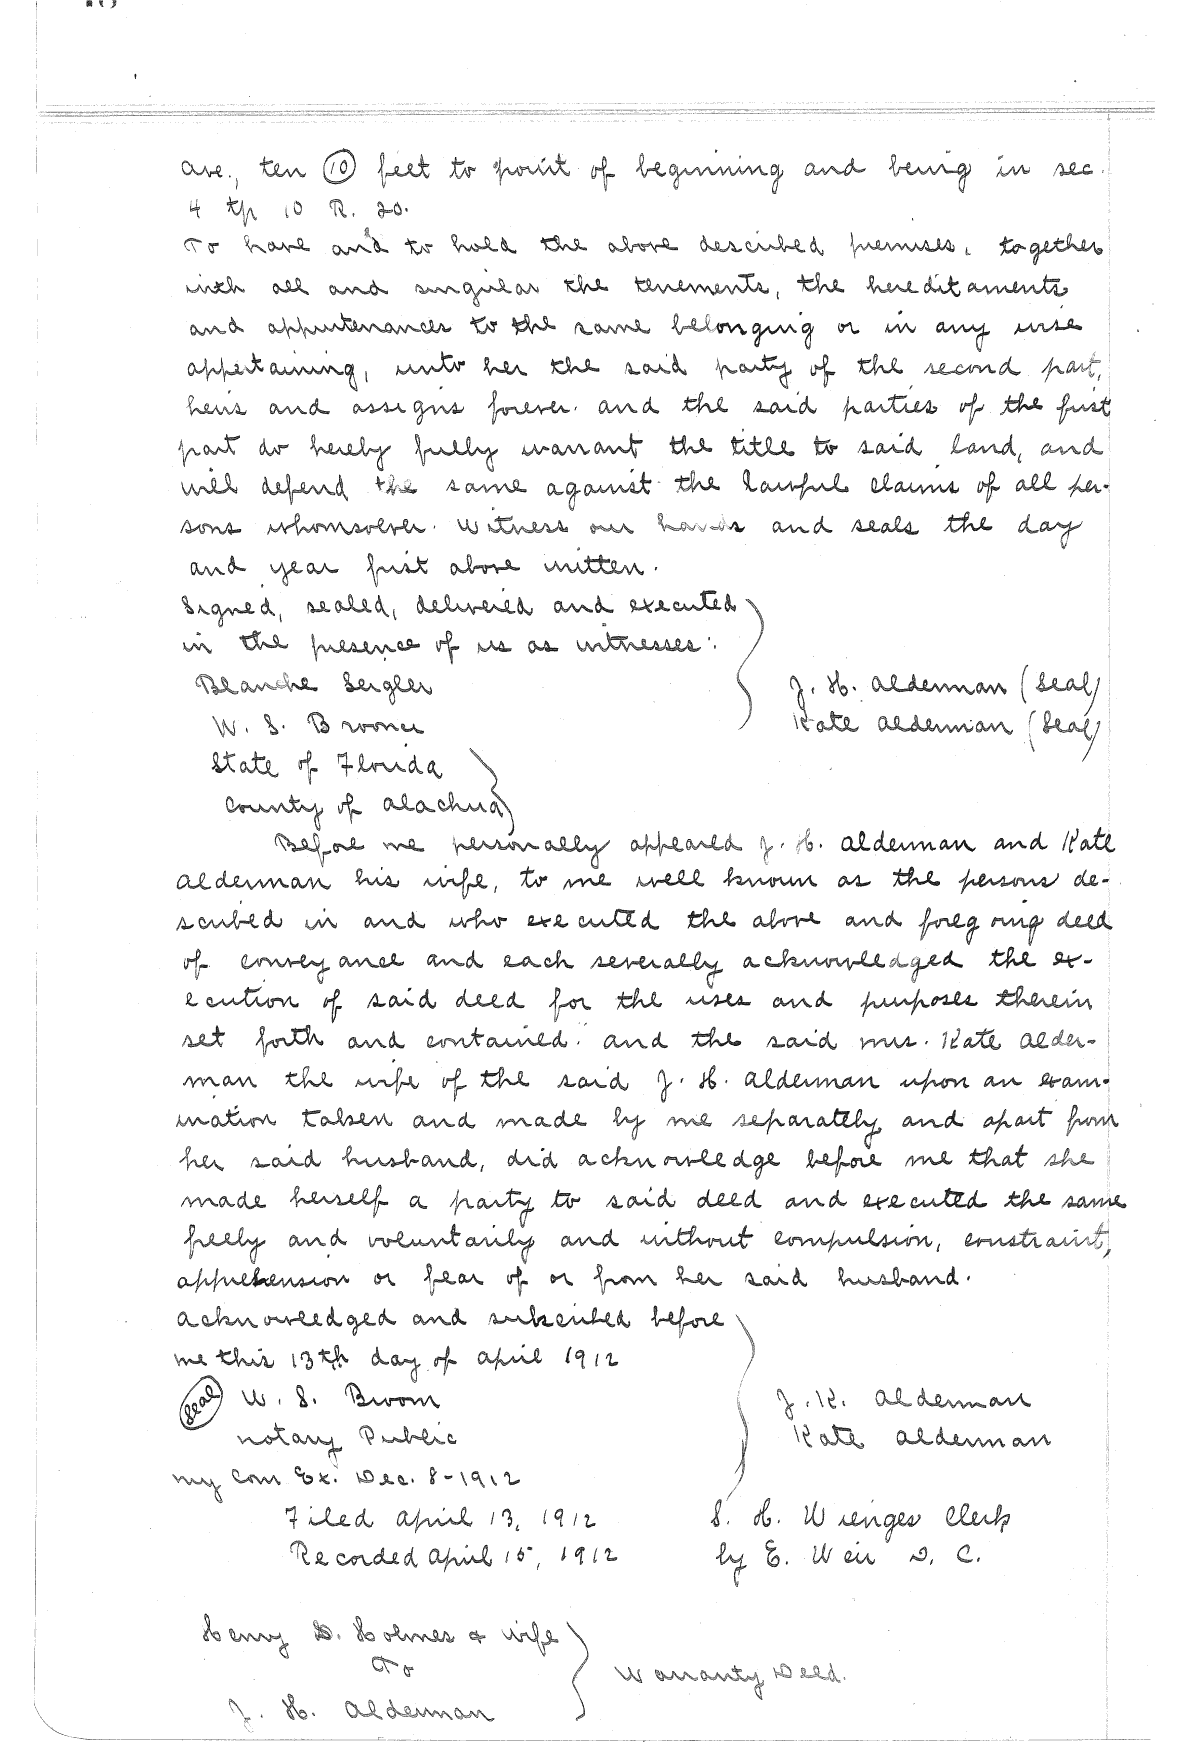 ave., ten (10) feet to point of beginning and being in sec.
4 tp 10 R. 20.
To have and to hold the above described premises, together
with all and singular the tenements, the hereditaments
and appurtenances to the same belonging or in any wise
appertaining, unto her the said party of the second part,
heirs and assigns forever. and the said parties of the first
part do hereby fully warrant the title to said land, and
will defend the same against the lawful claims of all per-
sons whomsoever. Witness our hands and seals the day
and year first above written.
Signed, sealed, delivered and executed
in the presence of us as witnesses:
Blanche Seigler
J. H. Alderman (Seal)
W. S. Broome
Kate Alderman (Seal)
State of Florida
County of Alachua
Before me personally appeared J. H. Alderman and Kate
Alderman his wife, to me well known as the persons de-
scribed in and who executed the above and foregoing deed
of conveyance and each severally acknowledged the ex-
ecution of said deed for the uses and purposes therein
set forth and contained. and the said Mrs. Kate Alder-
man the wife of the said J. H. Alderman upon an exam-
ination taken and made by me separately and apart from
her said husband, did acknowledge before me that she
made herself a party to said deed and executed the same
freely and voluntarily and without compulsion, constraint,
apprehension or fear of or from her said husband.
Acknowledged and subscribed before
me this 13th day of April 1912
(Seal) W. S. Broom
J. H. Alderman
Notary Public
Kate Alderman
My Com Ex. Dec. 8-1912
Filed April 13, 1912
S. H. Wienges Clerk
Recorded April 15, 1912
by E. Weir D. C.
Henry D. Holmes & wife
To
Warranty Deed.
J. H. Alderman